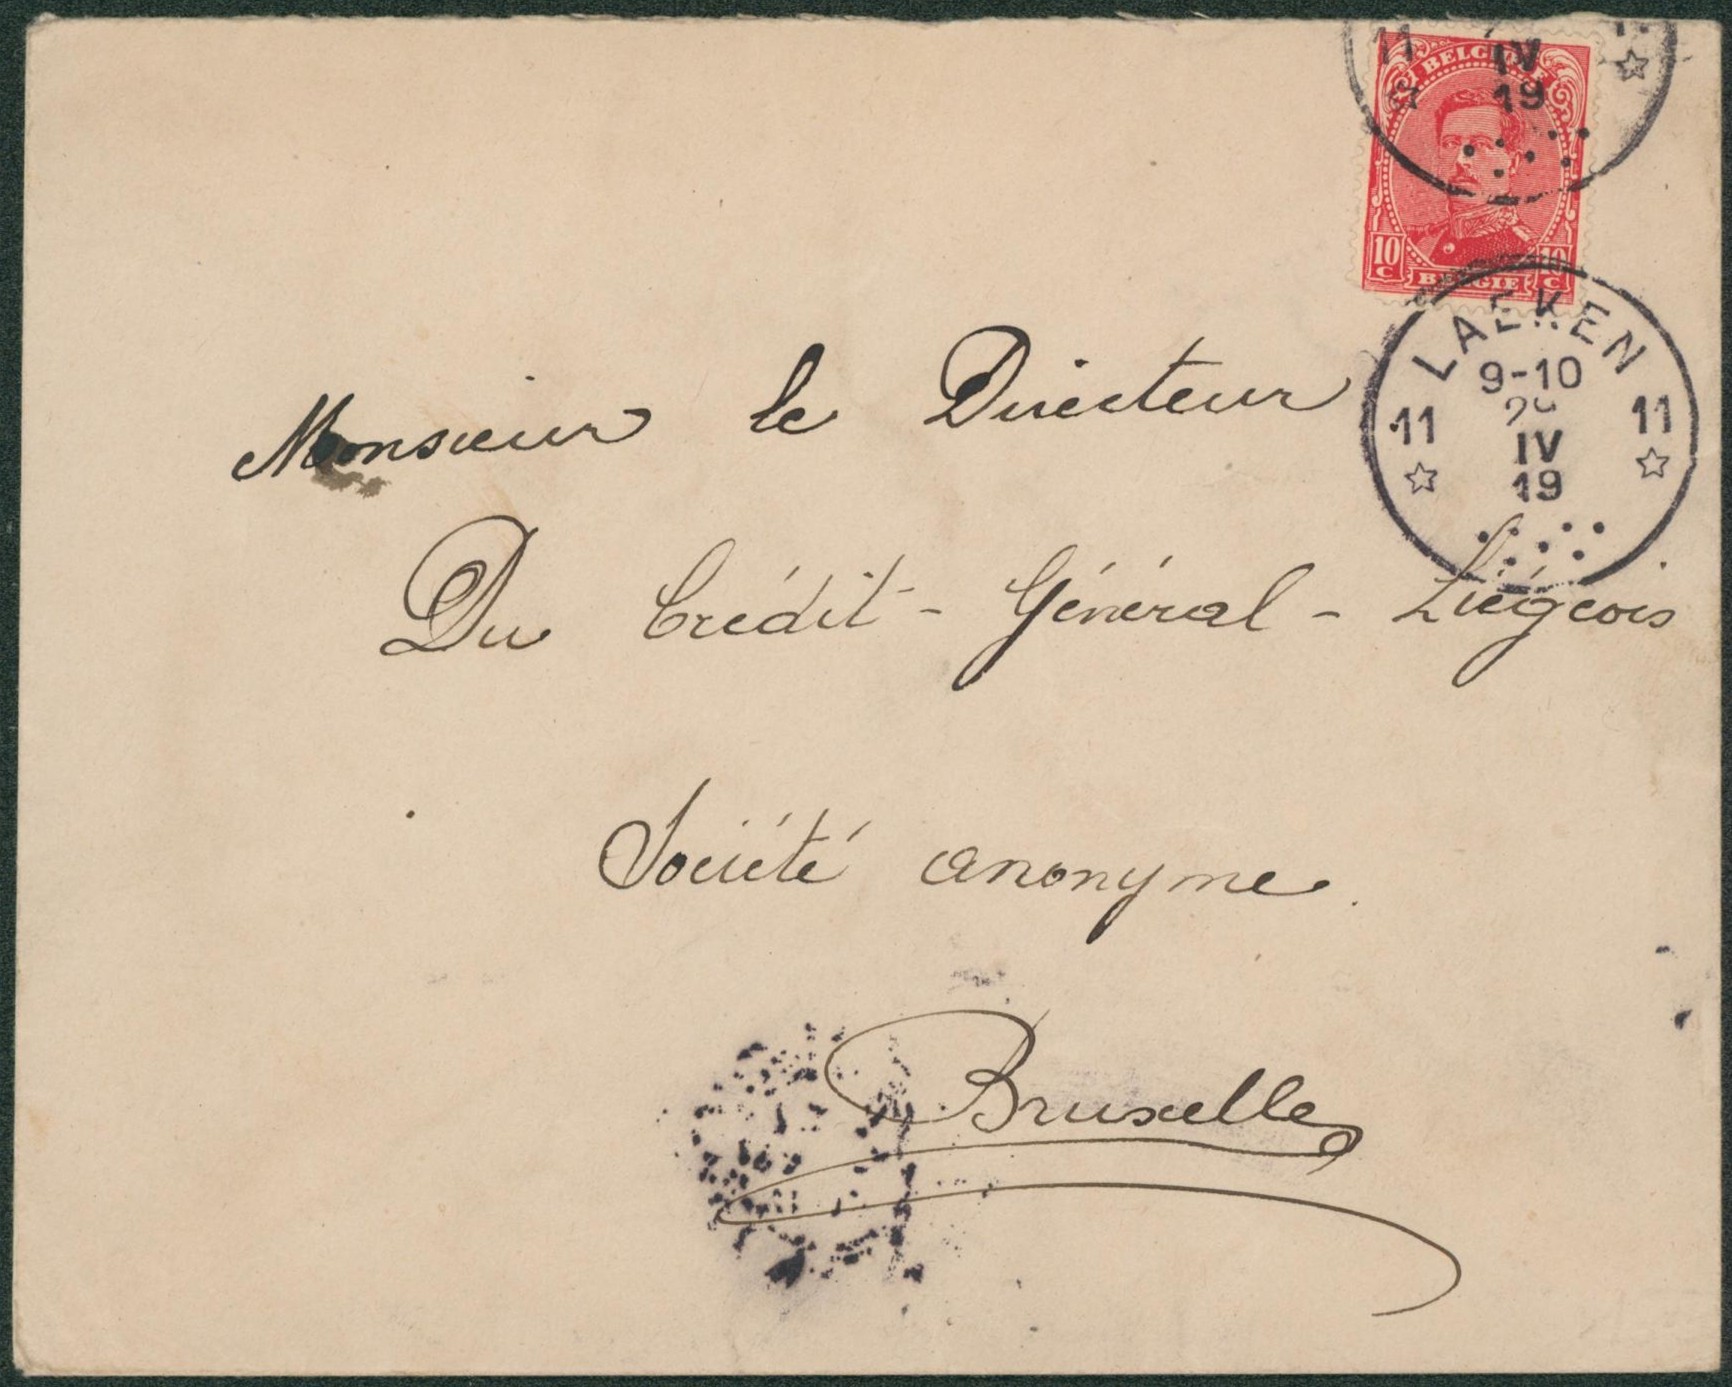 11 IV 11
19
BELGIE
10 C 10 C
BELGIE
LAEKEN
9-10
11 11
IV
19
Monsieur le Directeur
Du Crédit - Général - Liégeois
Société anonyme.
Bruxelles